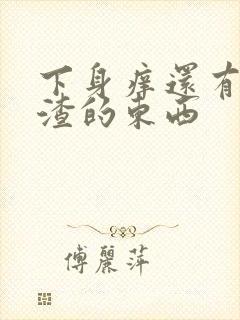 下身痒還有
渣的東西
傅麗萍